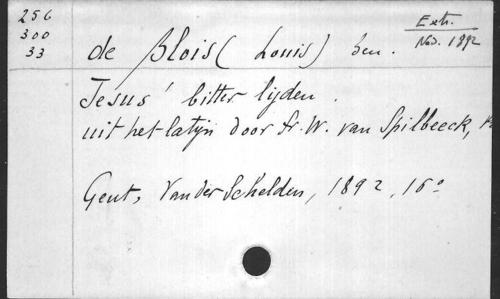 256
300
33
Extr.
Nov. 1892
de Blois (Louis) ben.
Jesus' bitter lijden.
uit het latijn door fr. W. van Spilbeeck,
Gent, Van der Schelden, 1892, 16°